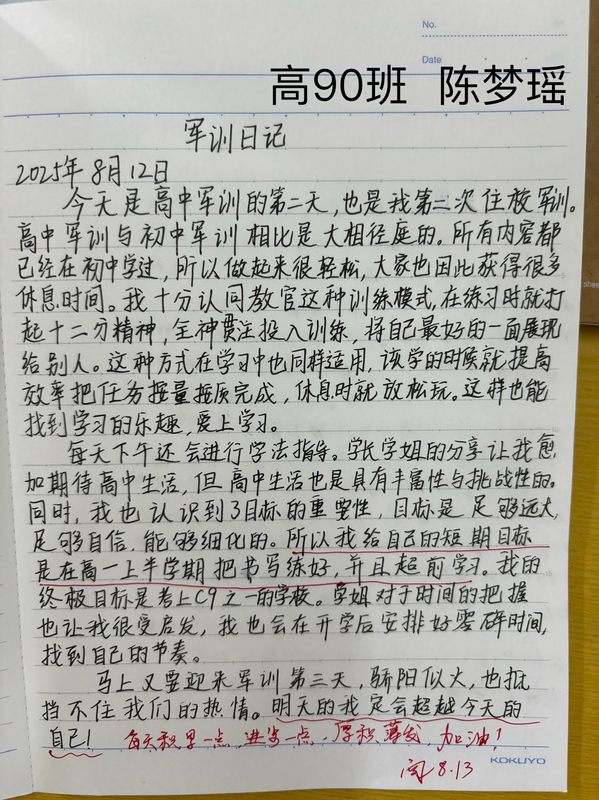 No.
Date
高90班 陈梦瑶
军训日记
2025年8月12日
今天是高中军训的第二天，也是我第二次住校军训。
高中军训与初中军训相比是大相径庭的。所有内容都
已经在初中学过，所以做起来很轻松，大家也因此获得很多
休息时间。我十分认同教官这种训练模式，在练习时就打
起十二分精神，全神贯注投入训练，将自己最好的一面展现
给别人。这种方式在学习中也同样适用，该学的时候就提高
效率把任务按量按质完成，休息时就放松玩。这样也能
找到学习的乐趣，爱上学习。
每天下午还会进行学法指导。学长学姐的分享让我愈
加期待高中生活，但高中生活也是具有丰富性与挑战性的。
同时，我也认识到了目标的重要性，目标是足够远大，
足够自信，能够细化的。所以我给自己的短期目标
是在高一上半学期把书写练好，并且超前学习。我的
终极目标是考上C9之一的学校。学姐对于时间的把握
也让我很受启发，我也会在开学后安排好零碎时间，
找到自己的节奏。
马上又要迎来军训第三天，骄阳似火，也抵
挡不住我们的热情。明天的我定会超越今天的
自己！ 每天积累一点，进步一点，厚积薄发，加油！
KOKUYO
闫8.13